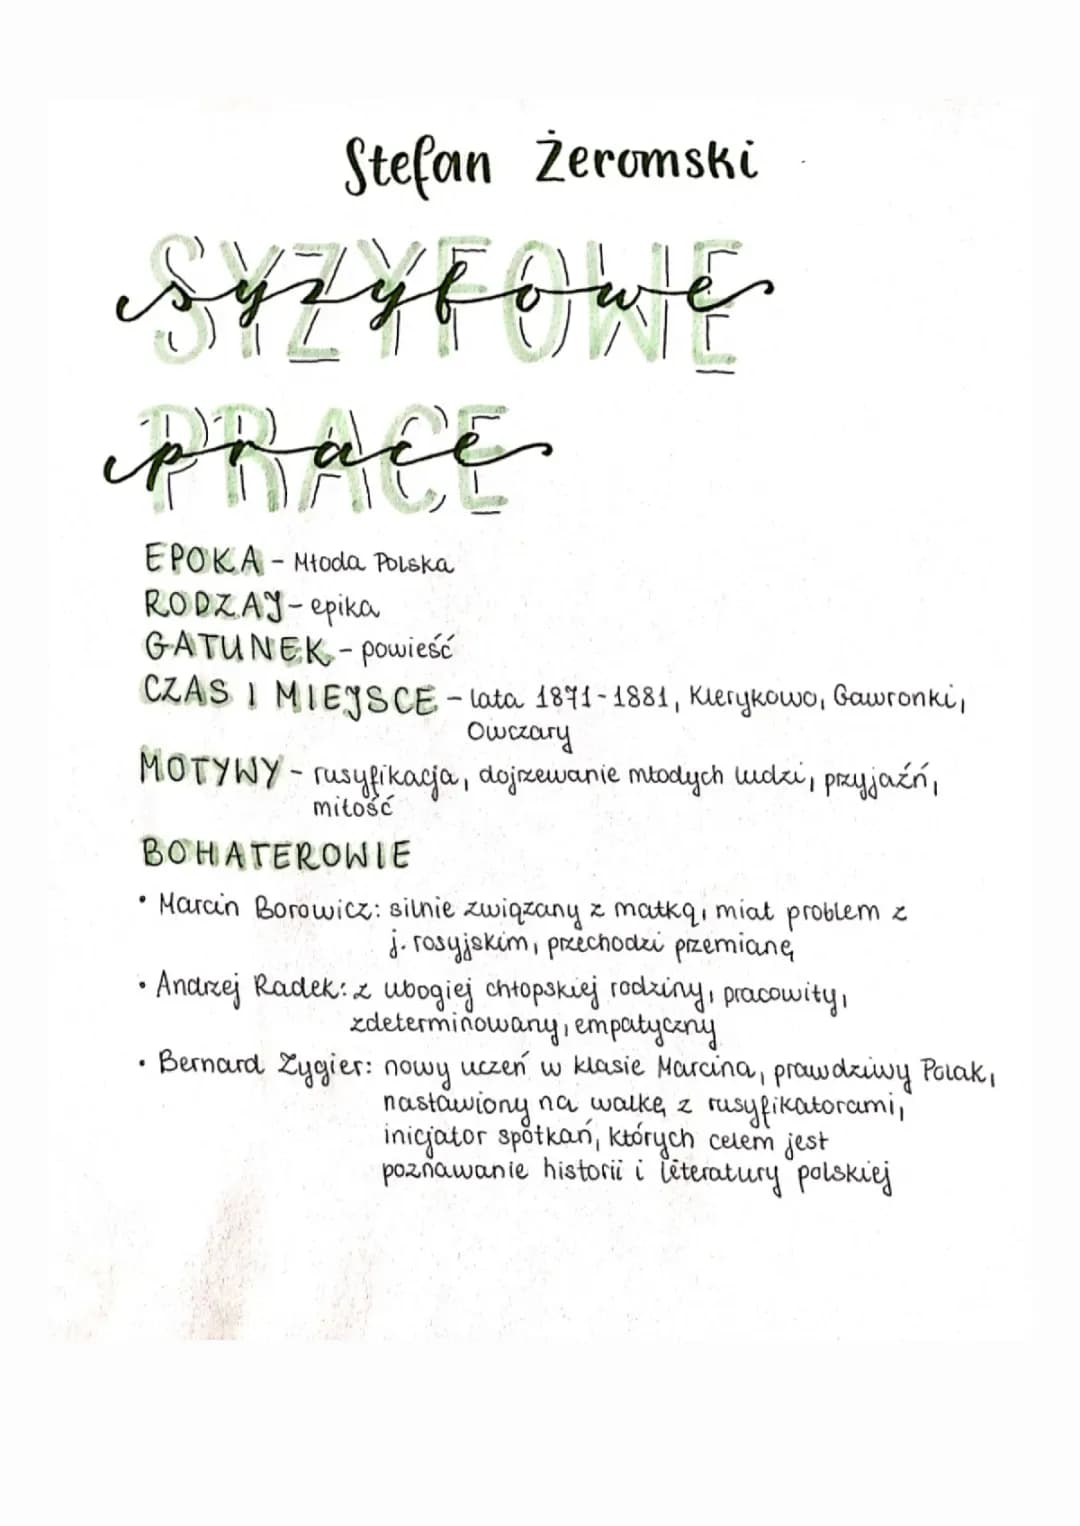 Stefan Żeromski
SYZYFOWE
syzyfowe
PRACE
prace
EPOKA - Młoda Polska
RODZAJ - epika
GATUNEK - powieść
CZAS I MIEJSCE - lata 1871-1881, Klerykowo, Gawronki,
Owczary
MOTYWY - rusyfikacja, dojrzewanie młodych ludzi, przyjaźń,
miłość
BOHATEROWIE
• Marcin Borowicz: silnie związany z matką, miał problem z
j. rosyjskim, przechodzi przemianę
• Andrzej Radek: z ubogiej chłopskiej rodziny, pracowity,
zdeterminowany, empatyczny
• Bernard Zygier: nowy uczeń w klasie Marcina, prawdziwy Polak,
nastawiony na walkę z rusyfikatorami,
inicjator spotkań, których celem jest
poznawanie historii i literatury polskiej